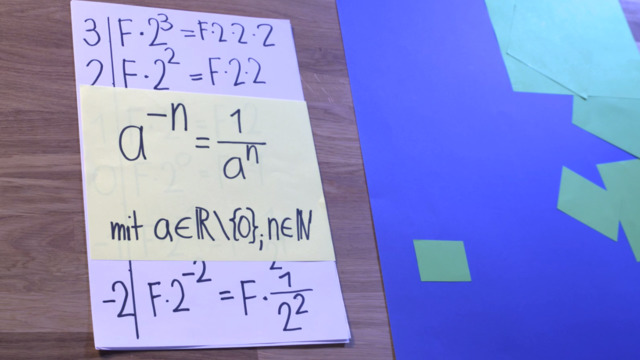 3 | F·2³ = F·2·2·2
2 | F·2² = F·2·2
a⁻ⁿ = 1/aⁿ
mit a∈ℝ\{0}; n∈ℕ
-2 | F·2⁻² = F·1/2²